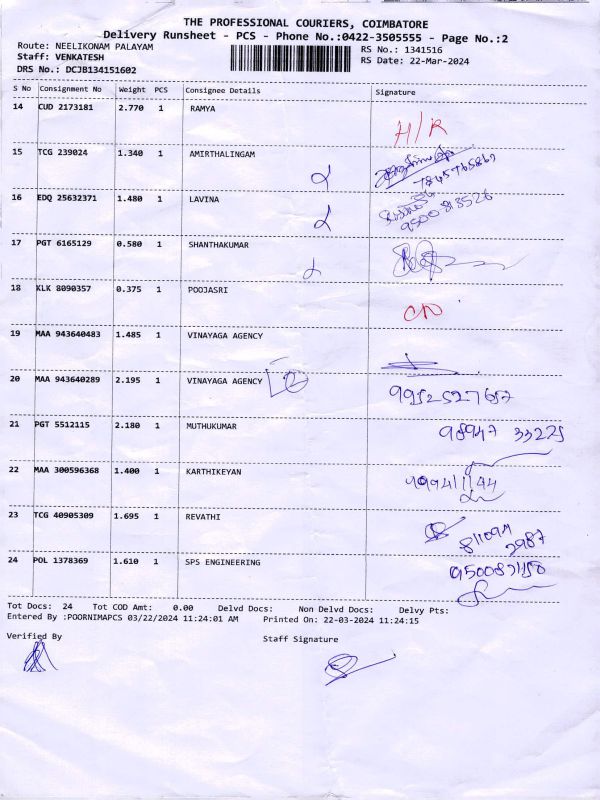 THE PROFESSIONAL COURIERS, COIMBATORE
Delivery Runsheet - PCS - Phone No.:0422-3505555 - Page No.:2
Route: NEELIKONAM PALAYAM RS No.: 1341516
Staff: VENKATESH RS Date: 22-Mar-2024
DRS No.: DCJB134151602
S No Consignment No Weight PCS Consignee Details Signature
14 CUD 2173181 2.770 1 RAMYA
H/R
15 TCG 239024 1.340 1 AMIRTHALINGAM
16 EDQ 25632371 1.480 1 LAVINA
9500813526
17 PGT 6165129 0.580 1 SHANTHAKUMAR
18 KLK 8090357 0.375 1 POOJASRI
19 MAA 943640483 1.485 1 VINAYAGA AGENCY
20 MAA 943640289 2.195 1 VINAYAGA AGENCY
21 PGT 5512115 2.180 1 MUTHUKUMAR
98947 33225
22 MAA 300596368 1.400 1 KARTHIKEYAN
23 TCG 40905309 1.695 1 REVATHI
24 POL 1378369 1.610 1 SPS ENGINEERING
Tot Docs: 24 Tot COD Amt: 0.00 Delvd Docs: Non Delvd Docs: Delvy Pts:
Entered By :POORNIMAPCS 03/22/2024 11:24:01 AM Printed On: 22-03-2024 11:24:15
Verified By Staff Signature